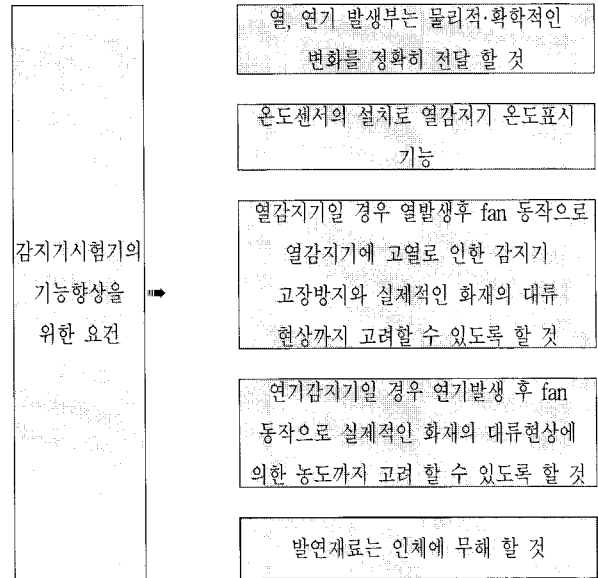 감지기시험기의
기능향상을
위한 요건
열, 연기 발생부는 물리적·확학적인
변화를 정확히 전달 할 것
온도센서의 설치로 열감지기 온도표시
기능
열감지기일 경우 열발생후 fan 동작으로
열감지기에 고열로 인한 감지기
고장방지와 실제적인 화재의 대류
현상까지 고려할 수 있도록 할 것
연기감지기일 경우 연기발생 후 fan
동작으로 실제적인 화재의 대류현상에
의한 농도까지 고려 할 수 있도록 할 것
발연재료는 인체에 무해 할 것